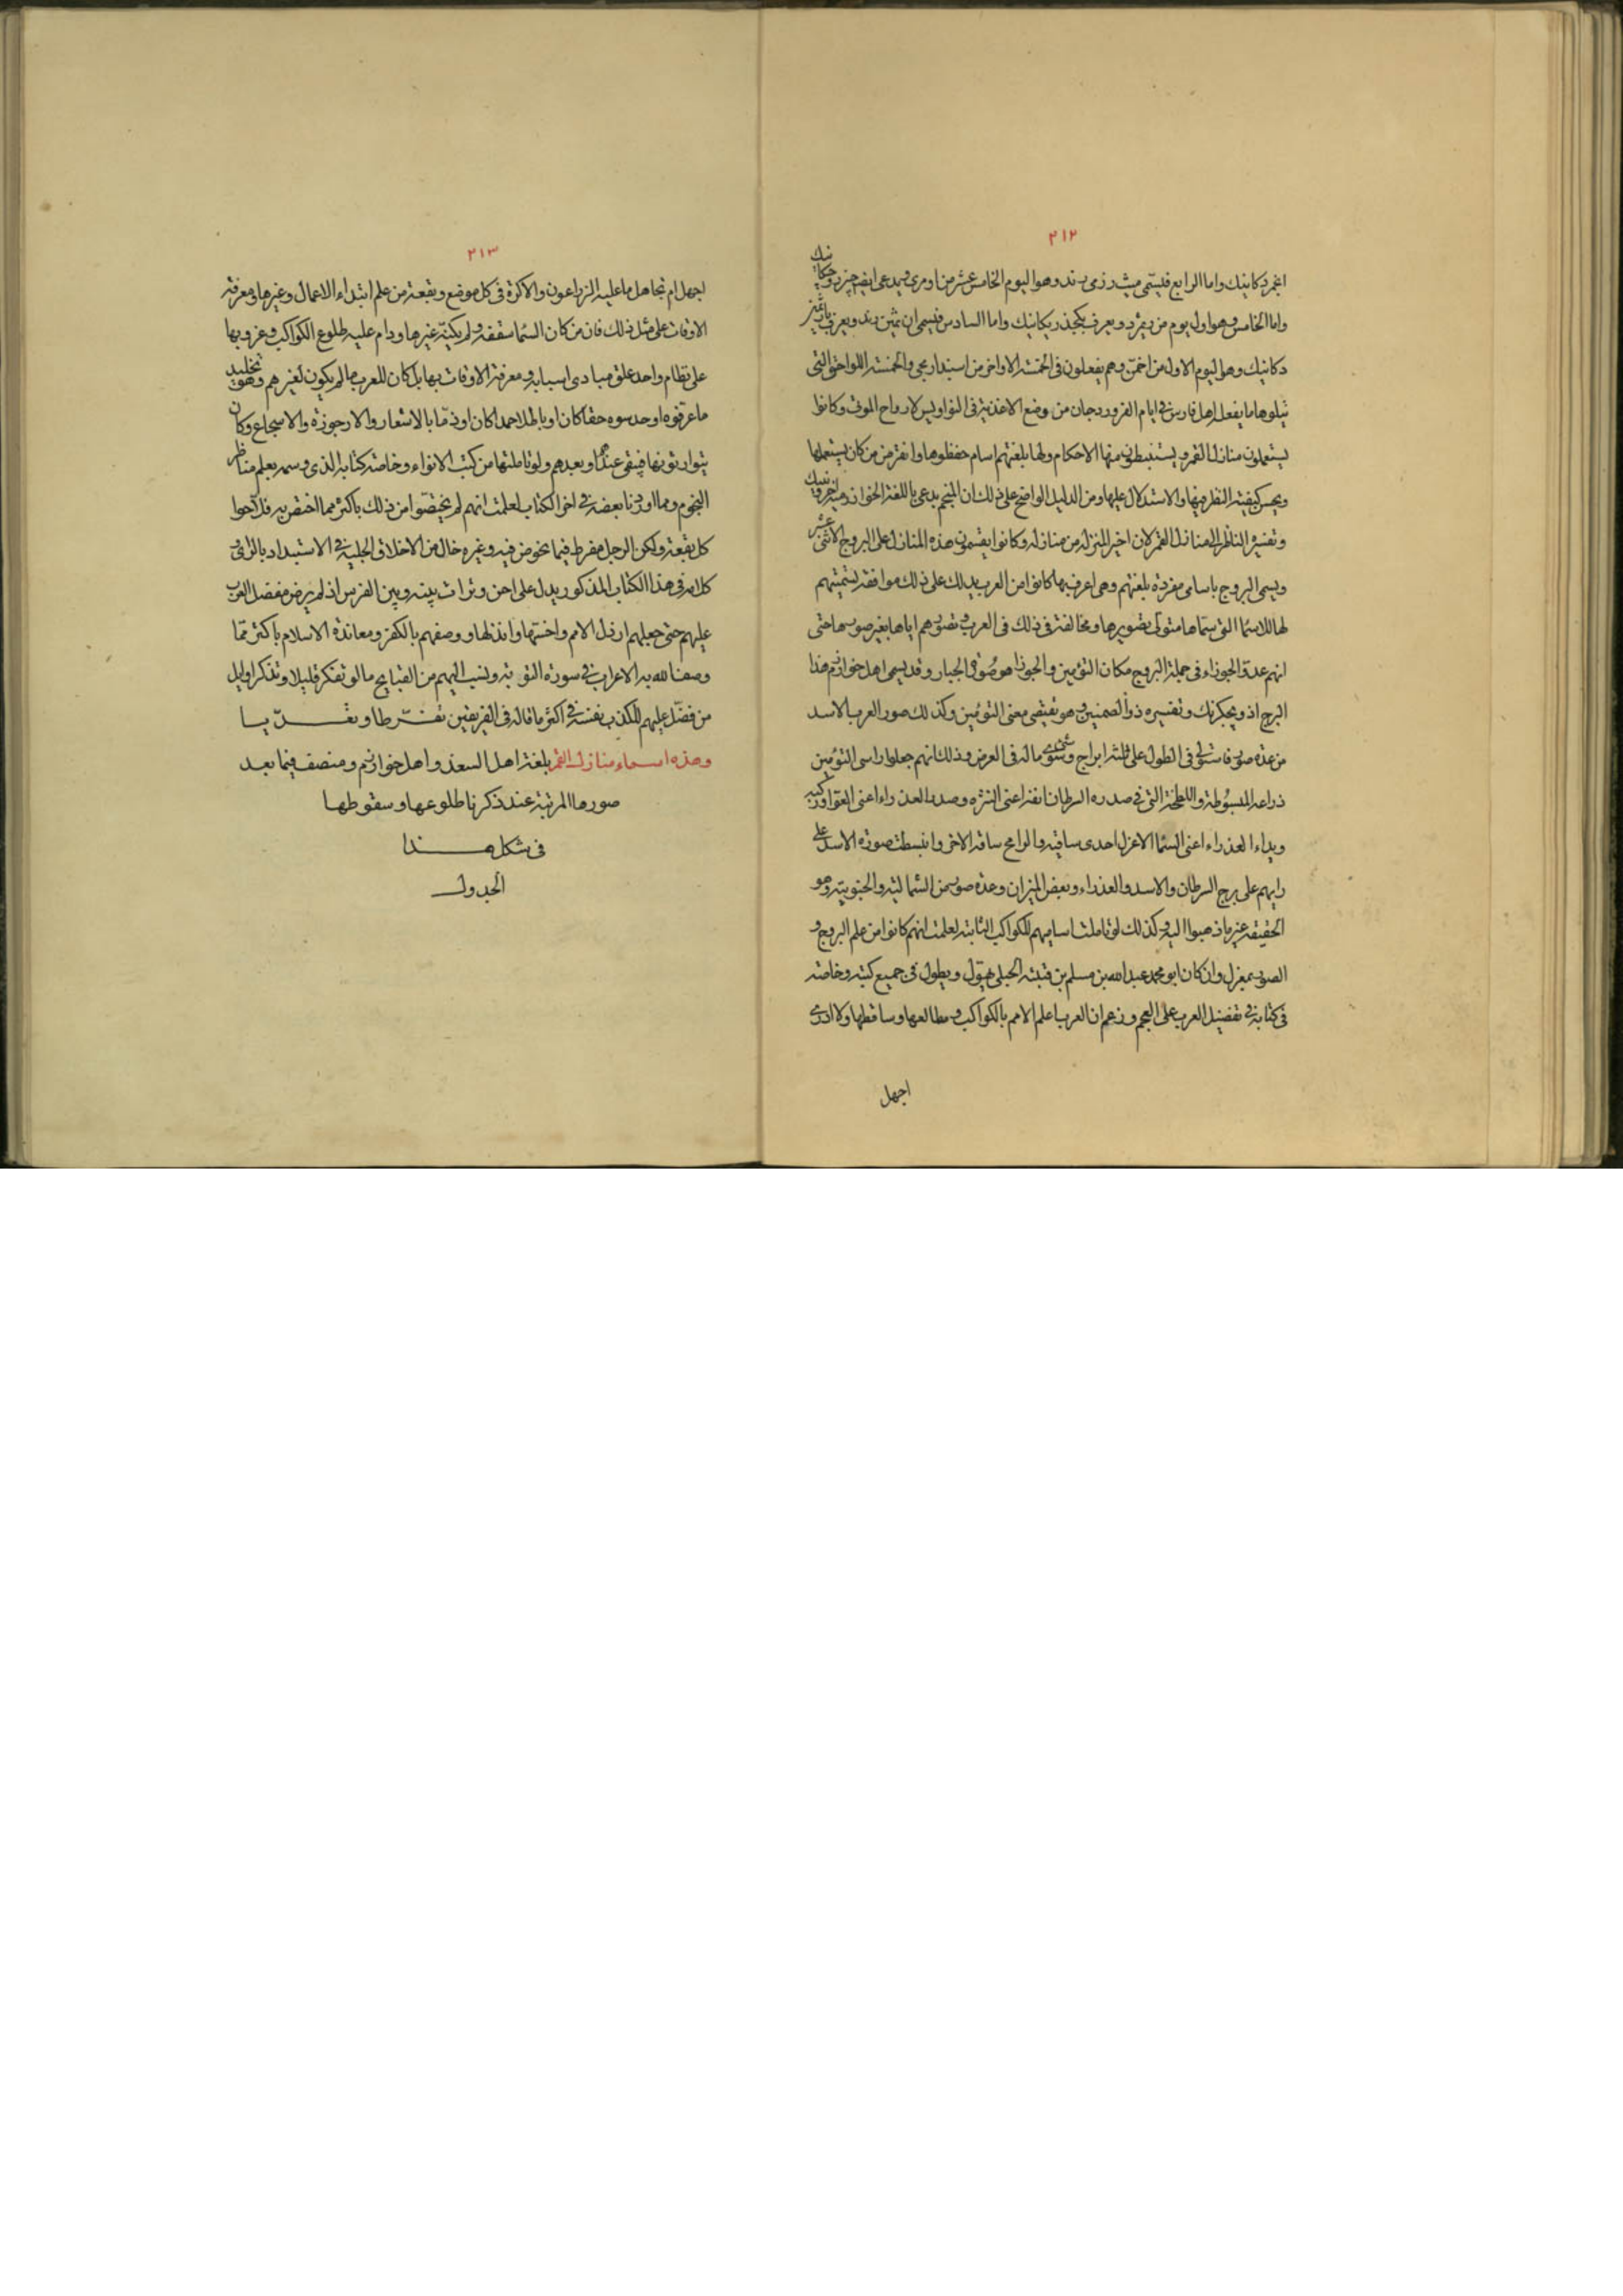 ٢١٢
اغمردكانيك واما الرابع فيسمى ميث رزمى رند وهو اليوم الخامس عشر من اومرى ويدعى ايضا
واما الخامس وهو اول يوم من ويعرف واما السادس فيسمى ويعرف
دكانيك وهو اليوم الاول من اخمن وهم يفعلون فى الخمسة الاواخر من اسبندارمجى والخمسة اللواحق التى
يتلوها ما يفعل اهل فارس فى ايام الفروردجان من وضع الاغذية فى النواويس لارواح الموتى وكانوا
يستعملون منازل القمر ويستنبطون منها الاحكام ولها بلغتهم اسام حفظوها وانقرض من كان يستعملها
ويحسن كيفية النظر فيها والاستدلال عليها ومن الدليل الواضح على ذلك ان المنجم يدعى باللغة الخوارزمية
وتفسيره الناظر الى منازل القمر لان اخر المنزلة من منازله وكانوا يقسمون هذه المنازل على البروج الاثنى عشر
ويسمى البروج باسامى مفردة بلغتهم وهم اعرف بها كانوا من العرب يدلك على ذلك موافقة تسميتهم
لها للاسما التى سماها متولى تصويرها ومخالفة فى ذلك فى العرب وتصورهم اياها بغير صورها حتى
انهم عدوا الجوزاء فى جملة البروج مكان التومين والجوزا هو صورة الجبار وقد يسمى اهل خوارزم هذا
البرج اذوپچكريك وتفسيره ذو الصنمين وهو يقتضى معنى التومين وكذلك صور العرب الاسد
من عدة صور فاستولى فى الطول على ثلثة ابراج وشى سوى ماله فى العرض وذلك انهم جعلوا راسى التومين
ذراعه المبسوطة واللطخة التى فى صدره السرطان انفه اعنى النثرة وصدر العذراء اعنى العوا وركيه
ويداء العذراء اعنى السما الاعزل احدى ساقيه والرامح ساقه الاخر وانبسطت صورة الاسد على
رايهم على برج السرطان والاسد والعذراء وبعض الميزان وعدة صور من الشمالية والجنوبية وهو
الحقيقة غير ما ذهبوا اليه وكذلك لو تاملت اساميهم للكواكب الثابتة لعلمت انهم كانوا من علم البروج و
الصور بمعزل وان كان ابو محمد عبد الله بن مسلم بن قتيبة الجبلى يهول ويطول فى جميع كتبه وخاصة
فى كتابه فى تفضيل العرب على العجم وزعم ان العرب اعلم الامم بالكواكب ومطالعها ومساقطها ولا ادرى
اجهل
٢١٣
اجهل ام تجاهل ما عليه الزراعون والاكرة فى كل موضع وبقعة من علم ابتداء الاعمال وغيرها ومعرفة
الاوقات على مثل ذلك فان من كان السما سقفه ولم يكنه غيرها ودام عليه طلوع الكواكب وغروبها
على نظام واحد علق مبادى اسبابه ومعرفة الاوقات بها بل كان للعرب ما لم يكن لغيرهم وهو تخليد
ما عرفوه او حدسوه حقا كان او باطلا حمدا كان او ذما بالاشعار والارجوزة والاسجاع وكان
يتوارثونها فيبقى عندهم او بعدهم ولو تاملتها من كتب الانواء وخاصة كتابه الذى وسمه بعلم مناظر
النجوم ومما اوردنا بعضه فى اخر الكتاب لعلمت انهم لم يختصوا من ذلك باكثر مما اختص به فلاحوا
كل بقعة ولكن الرجل مفرط فيما يخوض فيه وغيره خال من الاخلاق الجبلية فى الاستبداد بالراى و
كلامه فى هذا الكتاب المذكور يدل على احن وترات بينه وبين الفرس اذ لم يرض مفضل العرب
عليهم حتى جعلهم ارذل الامم واخسها وانذلها ووصفهم بالكفر ومعاندة الاسلام باكثر مما
وصف الله به الاعراب فى سورة التوبة ونسب اليهم من القبايح ما لو تفكر قليلا وتذكر اوايل
من فضل عليهم لكذب نفسه فى اكثر ما قاله فى الفريقين تفرطا وتعديا
وهذه اسماء منازل القمر بلغة اهل السغد واهل خوارزم ومنصف فيما بعد
صورها المرتبة عند ذكرنا طلوعها وسقوطها
فى شكل هذا
الجدول